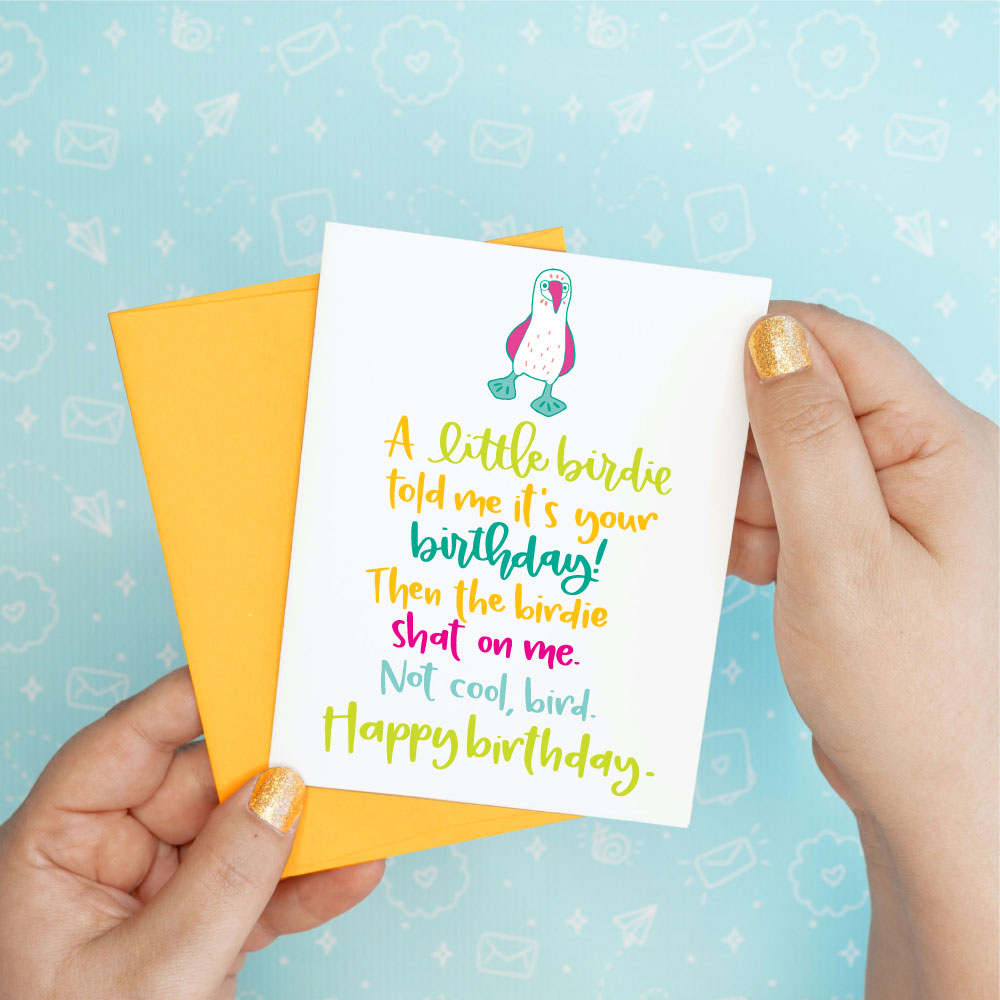 A little birdie
told me it's your
birthday!
Then the birdie
shat on me.
Not cool, bird.
Happy birthday.